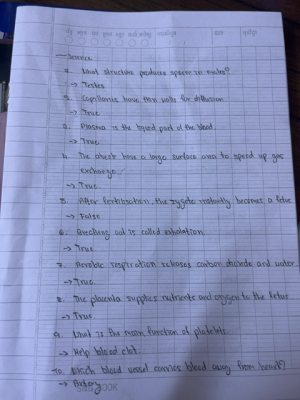 Science
1. What structure produces sperm in males?
→ Testes
2. Capillaries have thin walls for diffusion.
→ True
3. Plasma is the liquid part of the blood.
→ True
4. The alveoli have a large surface area to speed up gas
exchange.
→ True
5. After fertilisation, the zygote instantly becomes a fetus
→ False
6. Breathing out is called exhalation
→ True
7. Aerobic respiration releases carbon dioxide and water
→ True
8. The placenta supplies nutrients and oxygen to the fetus
→ True
9. What is the main function of platelets
→ Help blood clot.
10. Which blood vessel carries blood away from heart?
→ Artery
BOOK